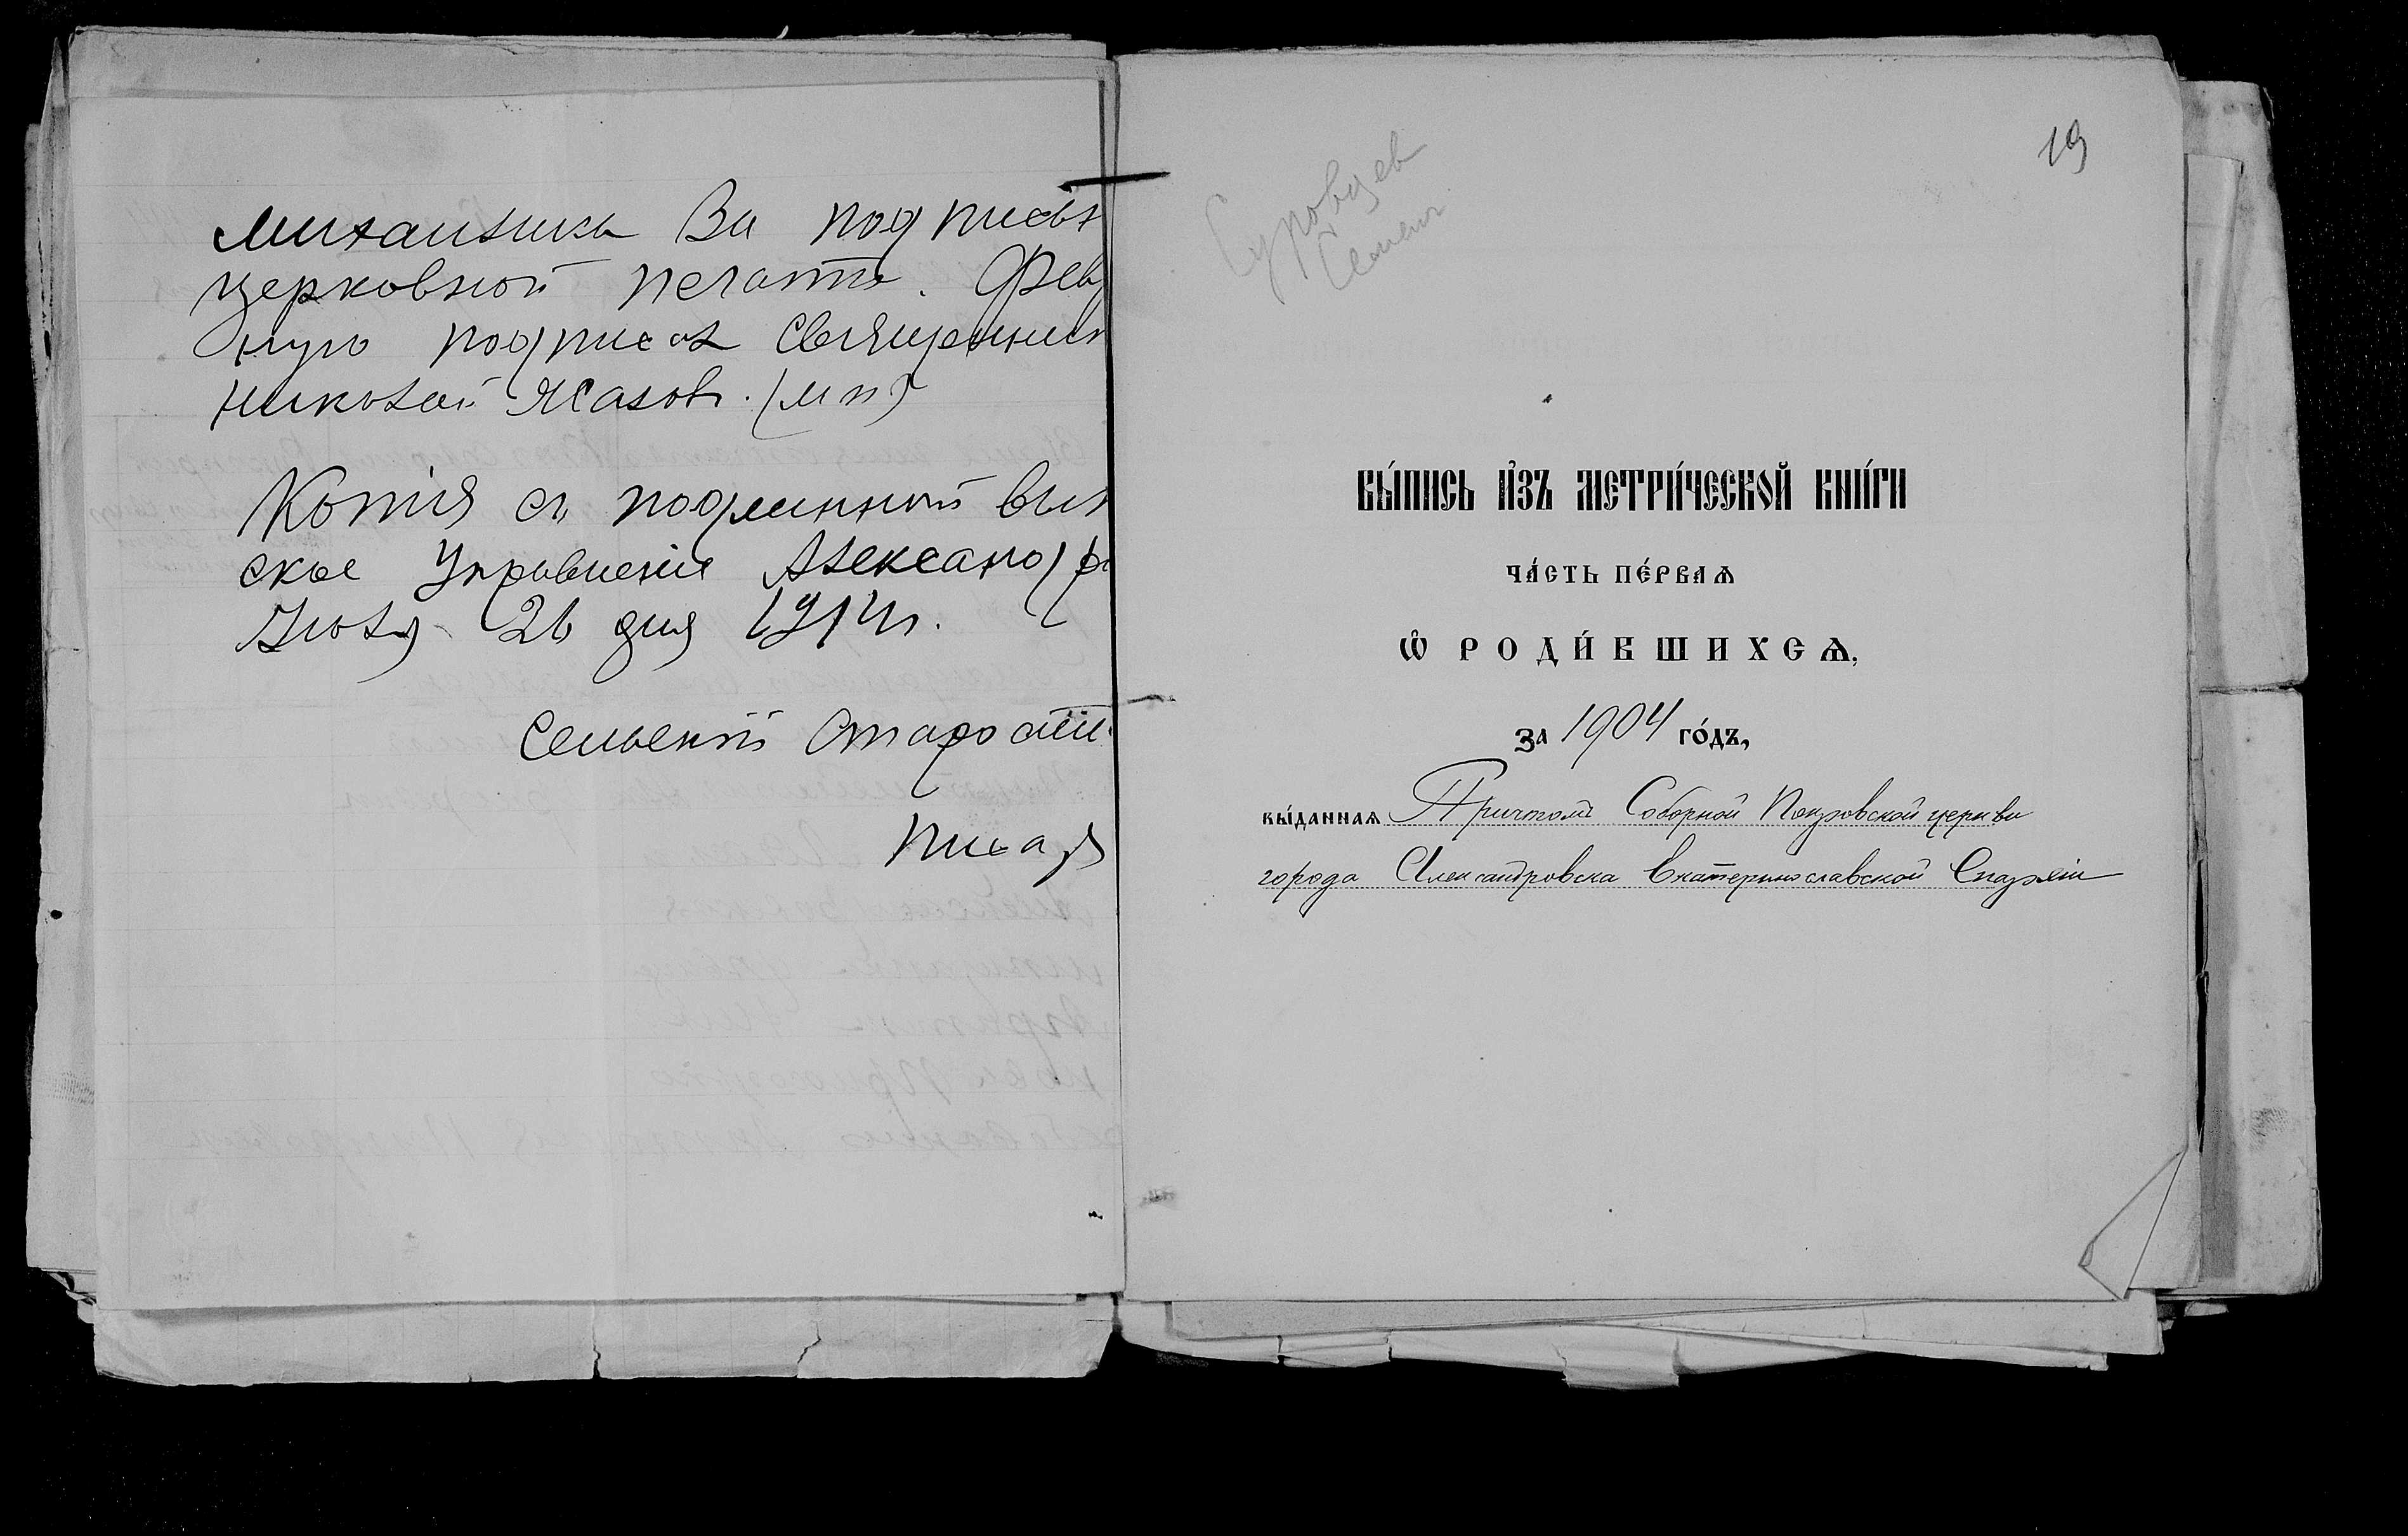 За подписью
церковной печати. Фев
ную подписал Священник
Николай Жаков. (мп)
Копія съ подлинной вып
ское Управленіе Александр
Іюля 26 дня 1914г.
Сельскій Старости
Писар
19
Суровцев
Семен
ВЫ́ПИСЬ И҆ЗЪ МЕТРИ́ЧЕСКОЙ КНИ́ГИ
ЧА́СТЬ ПЕ́РВАѦ
Ѡ҆ РОДИ́ВШИХСѦ,
за 1904 го́дъ,
вы́даннаѧ Причтомъ Соборной Покровской церкви
города Александровска Екатеринославской Епархіи